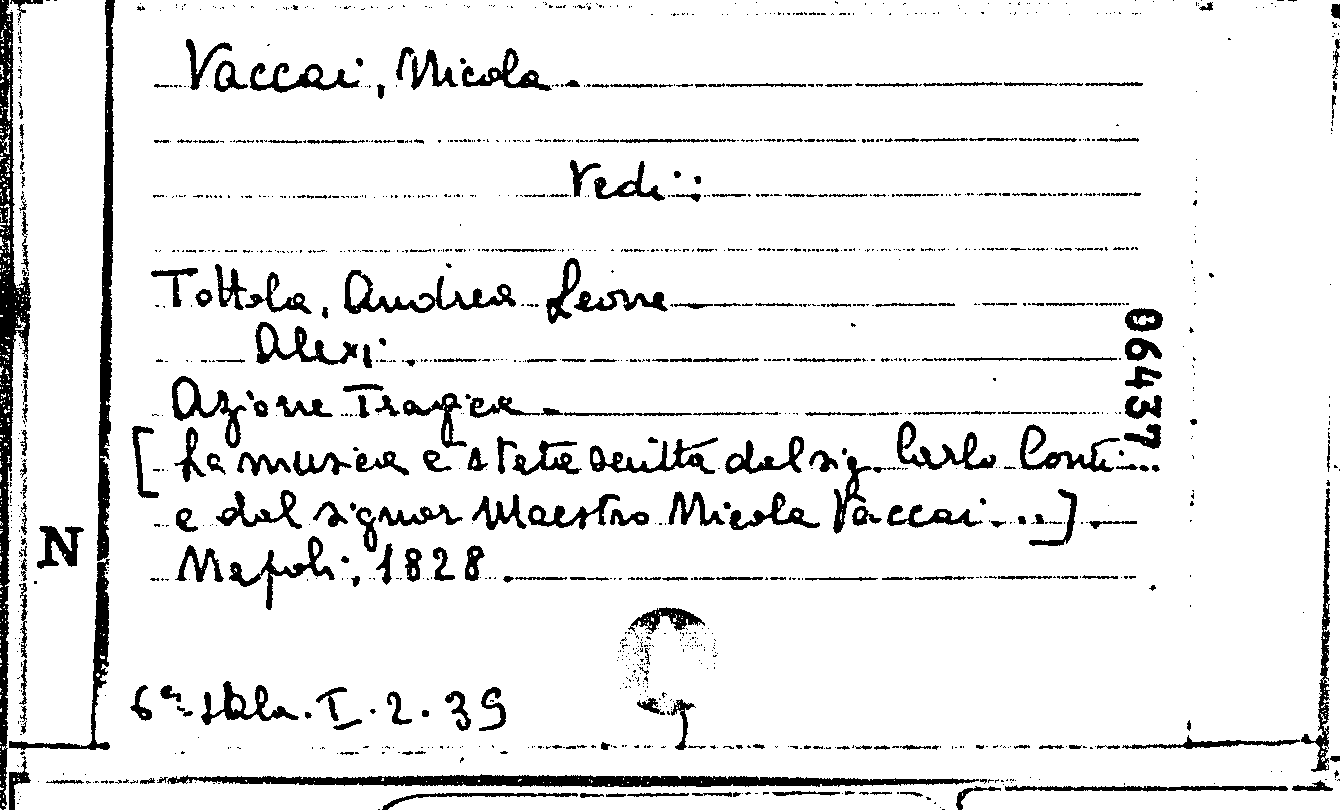 Vaccai, Nicola.
Vedi:
Tottola, Andrea Leone
Alexi.
Azione Tragica.
[La musica è stata scritta dal sig. Carlo Conti...
e dal signor Maestro Nicola Vaccai...].
Napoli, 1828.
06437
N
6ª Sala. I. 2. 39